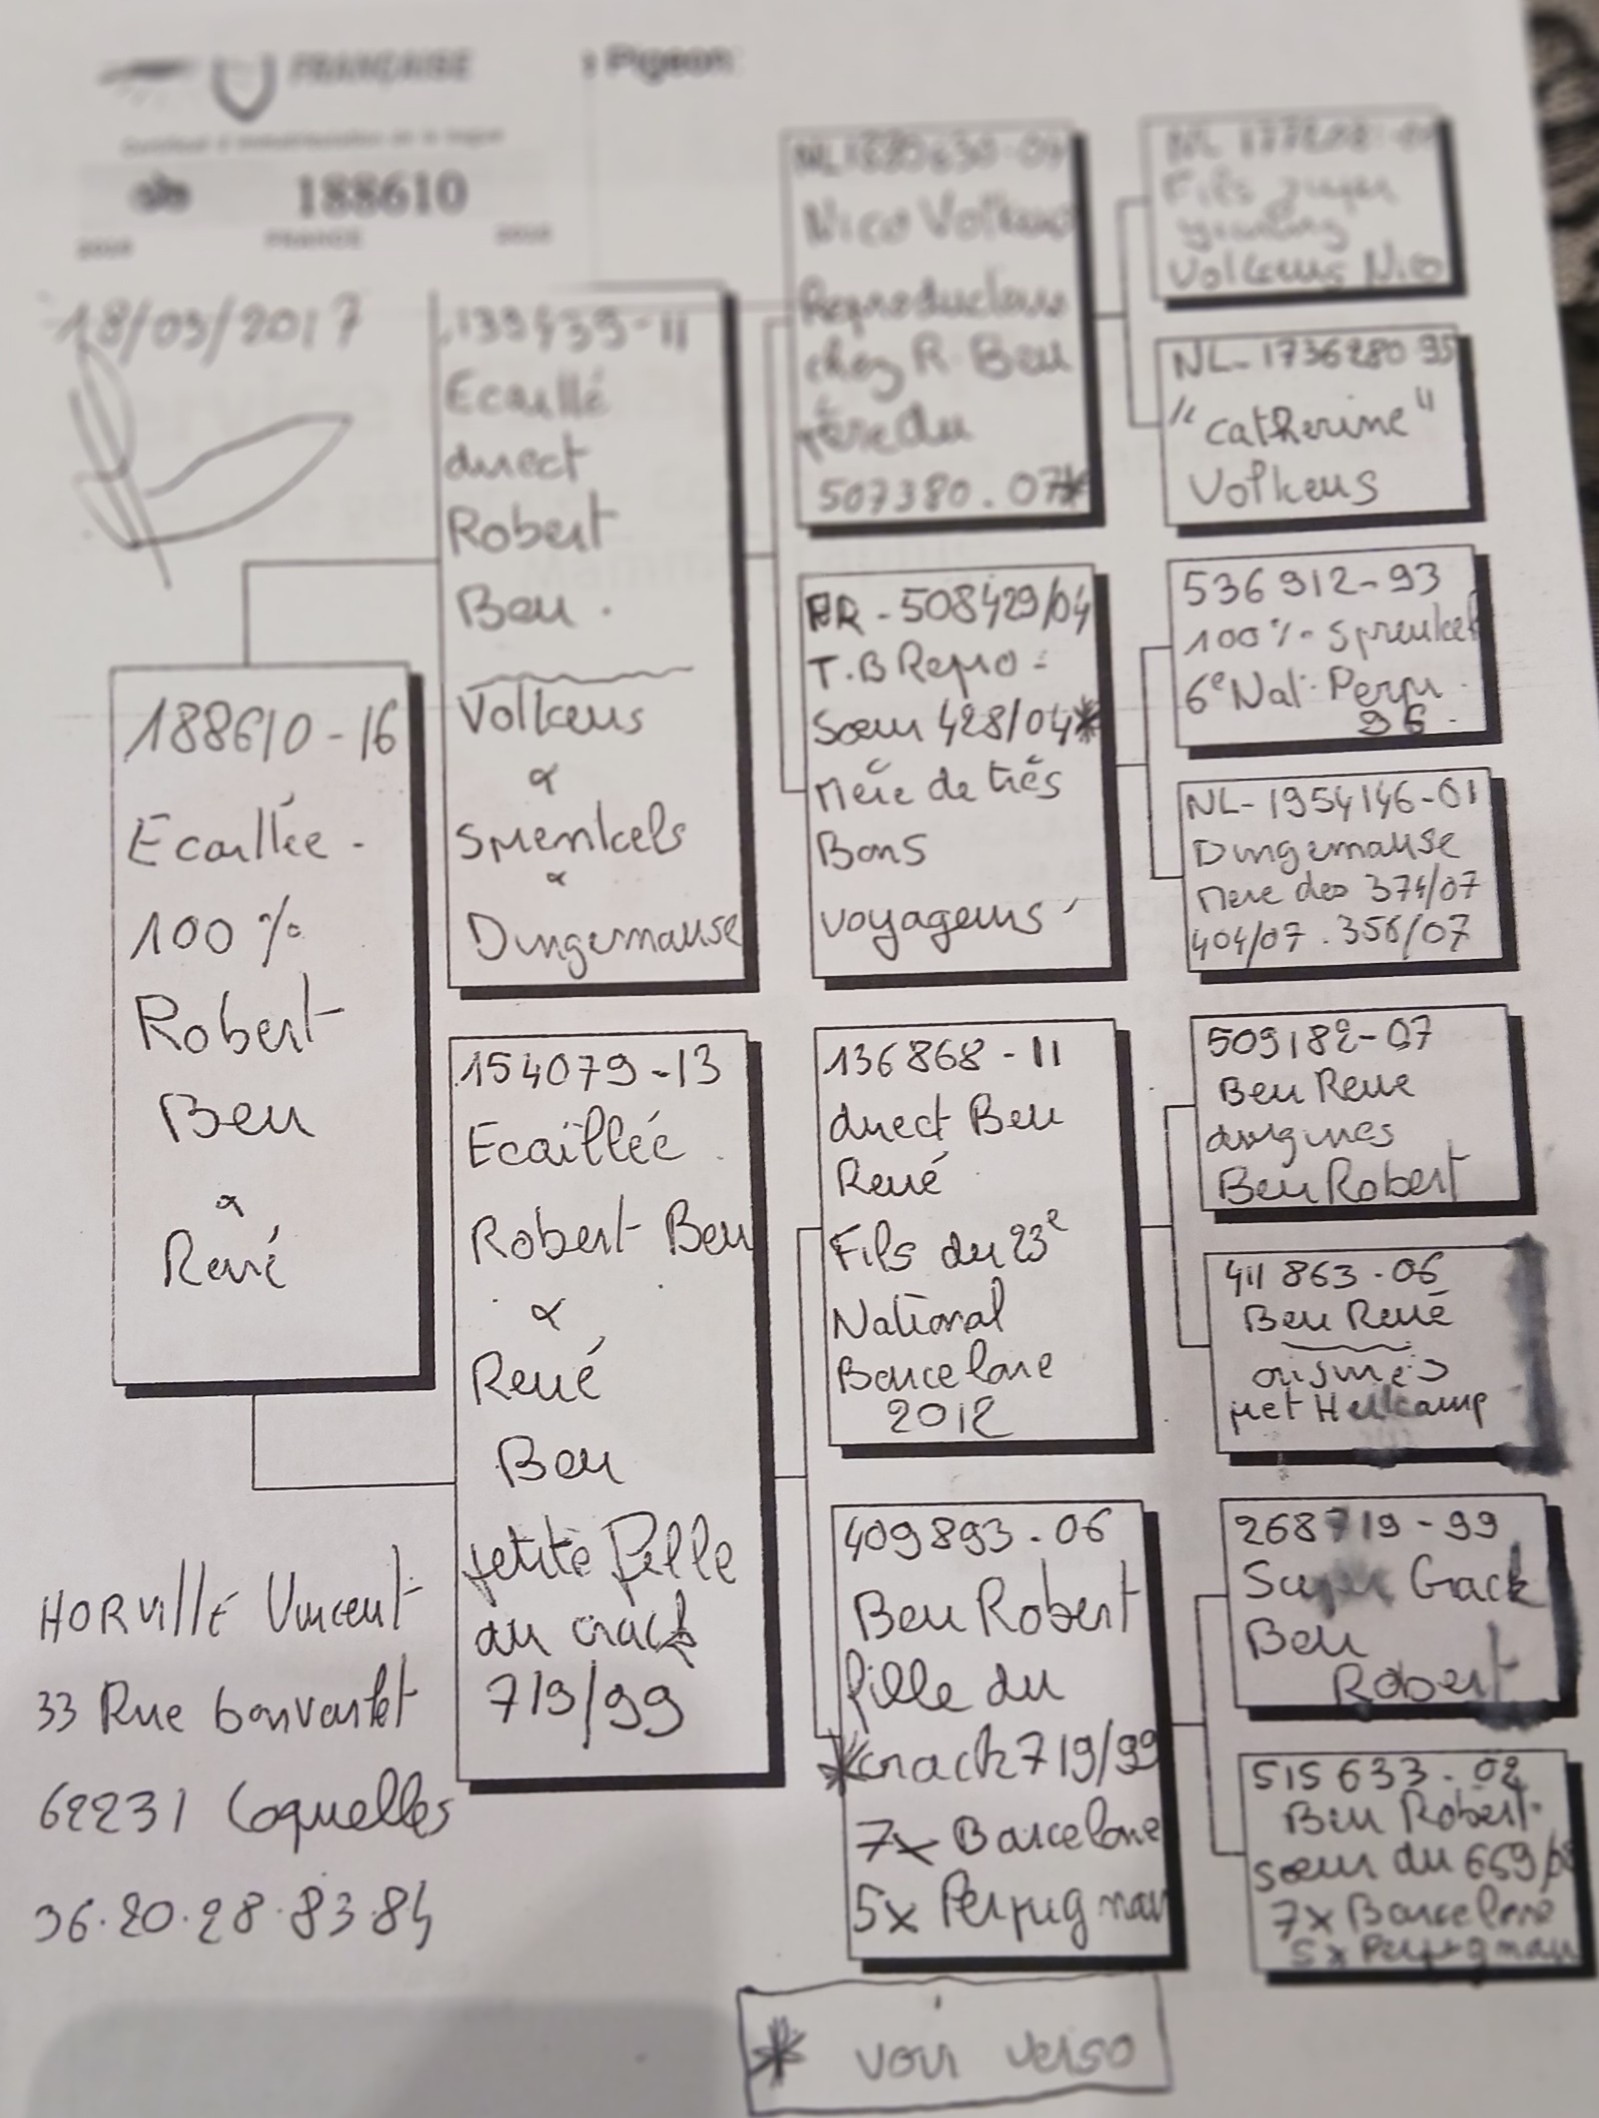 FRANÇAISE
Pigeon:
Certificat d'immatriculation de la bague
188610
2016 FRANCE 2016
18/03/2017
188610-16
Ecaillée.
100%
Robert
Beu
&
René
139439-11
Ecaillé
direct
Robert
Beu.
Volkeus
&
Sprenkels
&
Dingemause
154079-13
Ecaillée.
Robert Beu
&
René
Beu
petite fille
au crack
719/99
Nico Volkeus
Reproducteur
chez R. Beu
Père du
507380.07*
FR-508429/04
T.B Repro-
Sœur 428/04*
Mère de très
Bons
voyageurs
136868-11
direct Beu
René
Fils du 23e
National
Barcelone
2012
409893.06
Beu Robert
fille du
*crack 719/99
7x Barcelone
5x Perpignan
Fils super
Volkeus Nico
NL-1736280-95
"Catherine"
Volkeus
536912-93
100% Sprenkel
6e Nat. Perp.
96.
NL-1954146-01
Dingemause
Mère des 374/07
404/07.356/07
509182-07
Beu René
origines
Beu Robert
411863.06
Beu René
origines
pet Hellcamp
268719-99
Super Crack
Beu
Robert
515633.02
Beu Robert.
sœur du 659/
7x Barcelone
5x Perpignan
HORVillE Vincent
33 Rue bonvarlet
62231 Coquelles
36.20.28.83.84
* voir verso